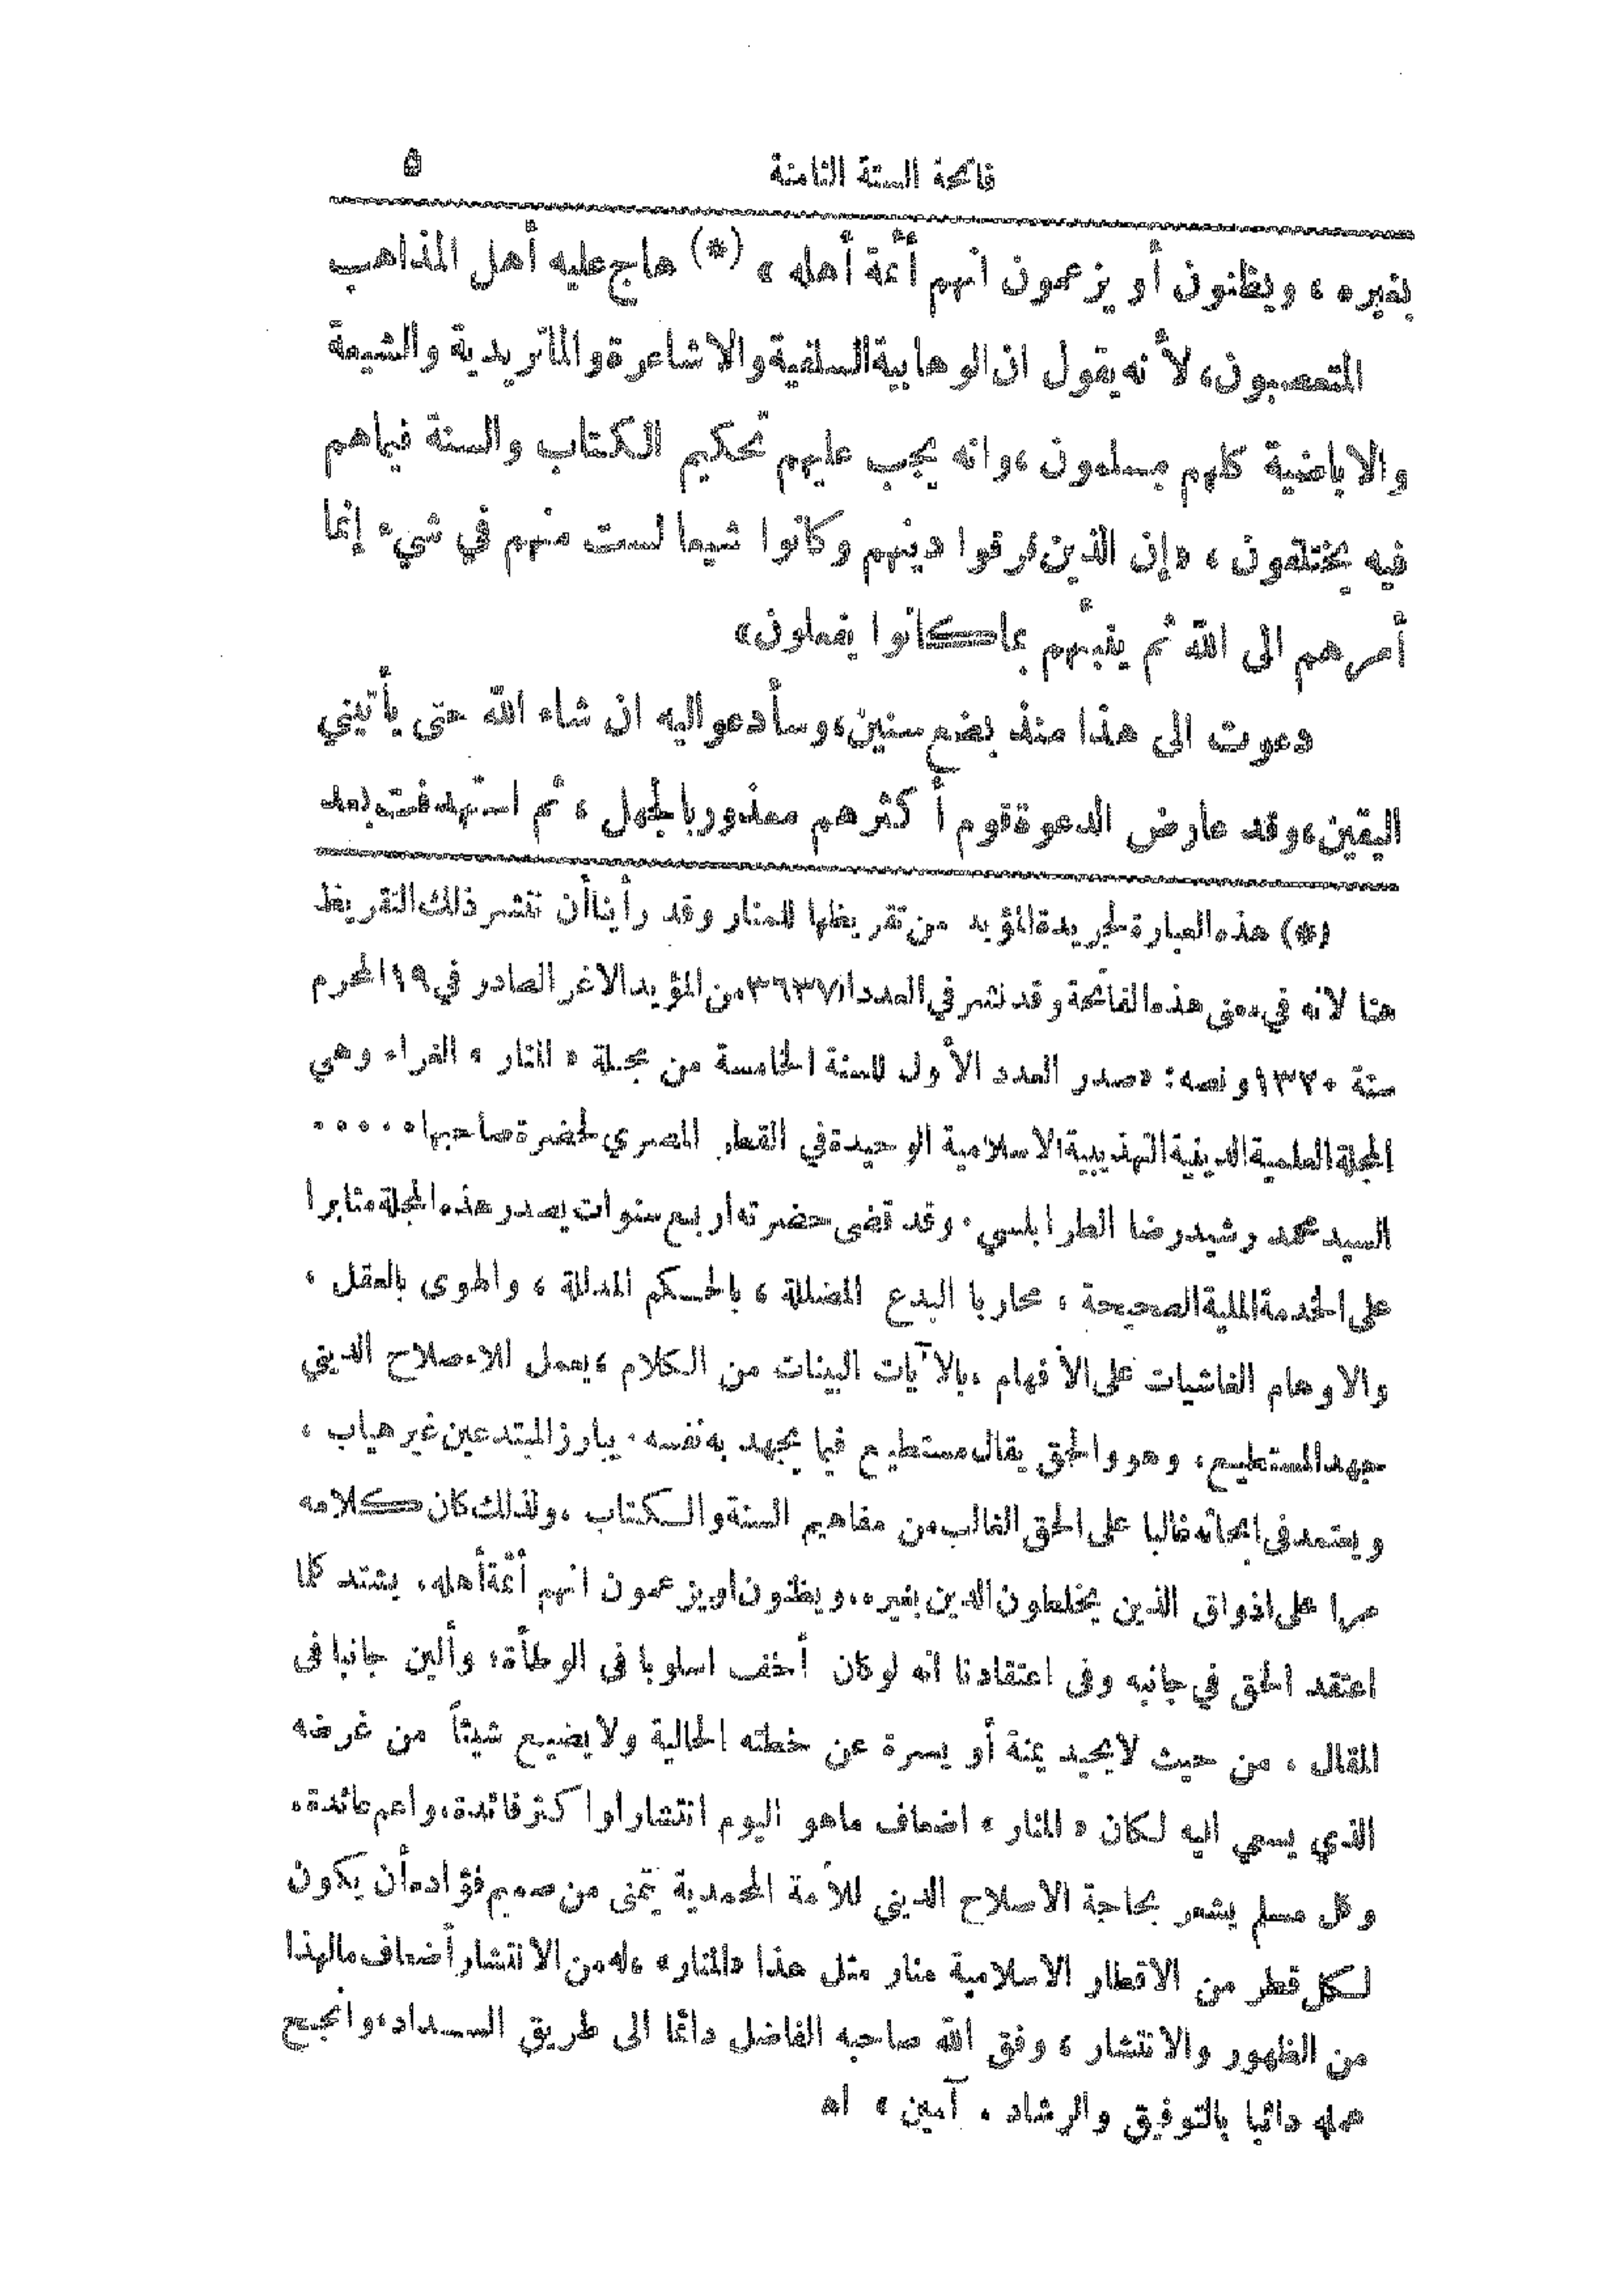 فاتحة السنة الثامنة ٥
بغيره ، ويظنون أو يزعمون انهم أئمة أهله » (*) هاج عليه أهل المذاهب
المتعصبون، لأنه يقول ان الوهابية السلفية والاشاعرة والماتريدية والشيعة
والاباضية كلهم مسلمون ، وانه يجب عليهم تحكيم الكتاب والسنة فيما هم
فيه يختلفون ، «إن الذين فرقوا دينهم وكانوا شيعا لست منهم في شيء إنما
أمرهم الى الله ثم ينبئهم بما كانوا يفعلون»
دعوت الى هذا منذ بضع سنين، وسأدعو اليه ان شاء الله حتى يأتيني
اليقين، وقد عارض الدعوة قوم أكثرهم معذور بالجهل ، ثم استهدفت بعد
(*) هذه العبارة لجريدة المؤيد من تقريظها للمنار وقد رأينا أن ننشر ذلك التقريظ
هنا لانه في معنى هذه الفاتحة وقد نشر في العدد ٣٦٣٧ من المؤيد الاغر الصادر في ١٩ المحرم
سنة ١٣٢٠ ونصه: «صدر العدد الأول للسنة الخامسة من مجلة « المنار » الغراء وهي
المجلة العلمية الدينية التهذيبية الاسلامية الوحيدة في القطر المصري لحضرة صاحبها ۰۰۰۰۰
السيد محمد رشيد رضا الطرابلسي . وقد قضى حضرته اربع سنوات يصدر هذه المجلة مثابرا
على الخدمة الملية الصحيحة ، محاربا البدع المضللة ، بالحكم المدللة ، والهوى بالعقل ،
والاوهام الغاشيات على الأفهام ، بالآيات البينات من الكلام ، يعمل للاصلاح الديني
جهد المستطيع ، وهو والحق يقال مستطيع فيما يجهد به نفسه . يبارز المبتدعين غير هياب ،
ويعتمد فى ابحاثه غالبا على الحق الغالب من مفاهيم السنة والكتاب ، ولذلك كان كلامه
مرا على اذواق الذين يخلطون الدين بغيره ، ويظنون او يزعمون انهم أئمة أهله . يشتد كلما
اعتقد الحق في جانبه وفى اعتقادنا انه لو كان أخف اسلوبا فى الوطأة ، وألين جانبا فى
المقال ، من حيث لا يحيد يمنة أو يسرة عن خطته الحالية ولا يضيع شيئاً من غرضه
الذي يسعى اليه لكان « المنار » اضعاف ما هو اليوم انتشارا وا كثر فائدة ، واعم عائدة ،
وكل مسلم يشعر بحاجة الاصلاح الديني للأمة المحمدية يتمنى من صميم فؤاده أن يكون
لكل قطر من الاقطار الاسلامية منار مثل هذا «المنار» ، له من الانتشار أضعاف ما لهذا
من الظهور والانتشار ، وفق الله صاحبه الفاضل دائما الى طريق السداد ، وانجح
عمله دائبا بالتوفيق والرشاد . آمين » اه